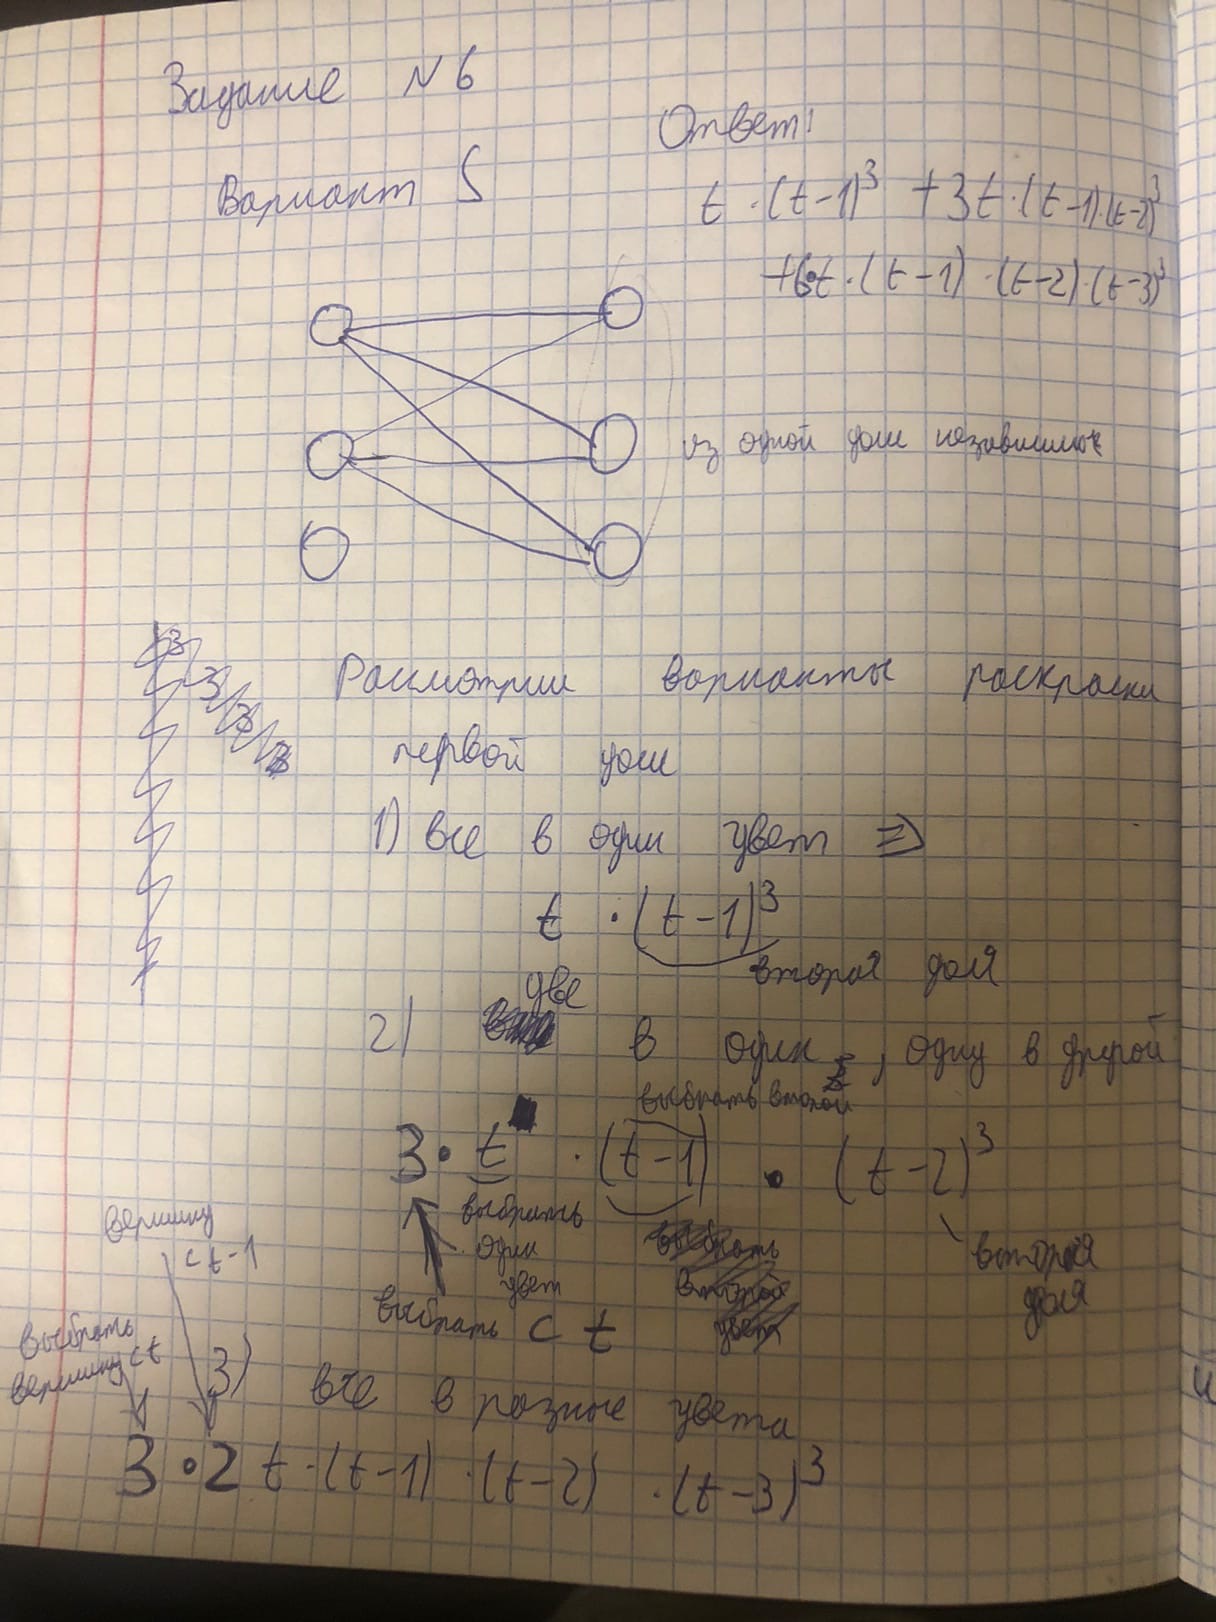 Задание N 6
Вариант 5
Ответ:
t · (t-1)³ + 3t·(t-1)·(t-2)³
+6·t·(t-1)·(t-2)·(t-3)³
из одной доли независимы
Расмотрим варианты раскраски
первой доли
1) все в один цвет ⇒
t · (t-1)³
вторая доля
2) две в один, одну в другой
выбрать второй
3 · t · (t-1) · (t-2)³
выбрать один цвет
вторая доля
выбрать с t
вершину с t-1
выбрать вершину с t
3) все в разные цвета
3 · 2 t · (t-1) · (t-2) · (t-3)³